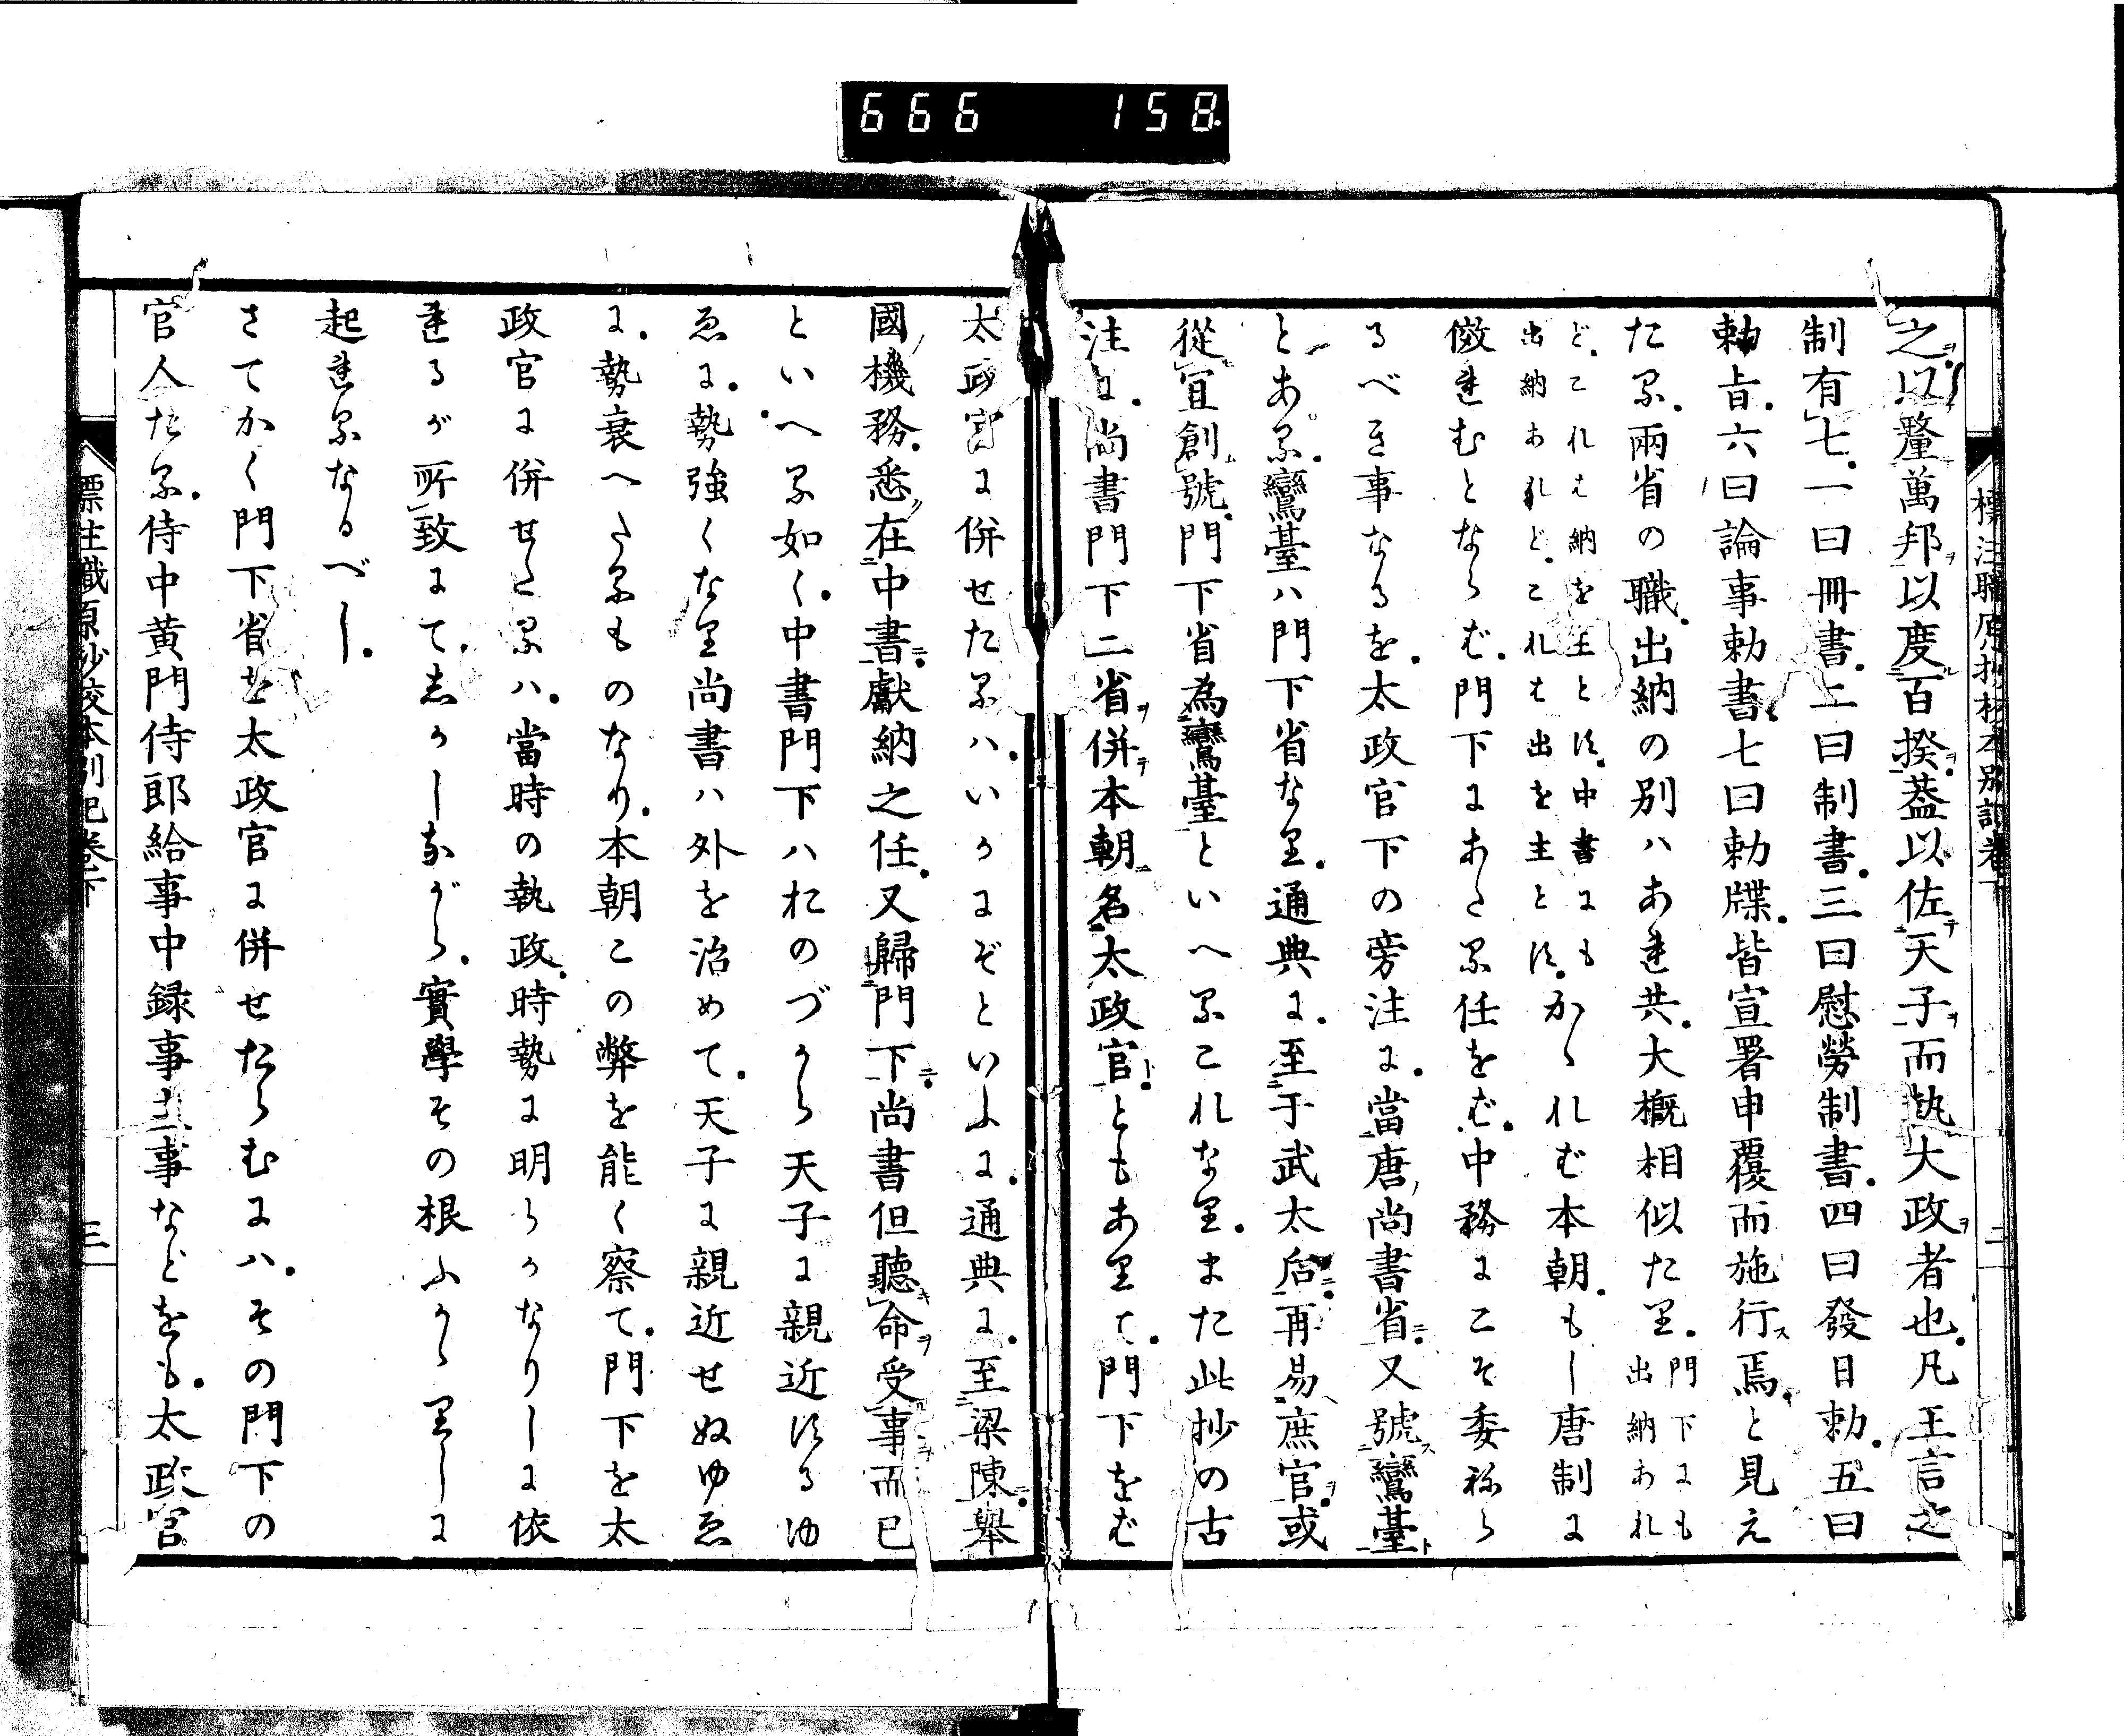 666 158
標注職原抄校本別記巻下 二
之以釐萬邦以度百揆蓋以佐天子而執大政者也凡王言之
制有七一曰冊書二曰制書三曰慰勞制書四曰發日勅五曰
勅旨六曰論事勅書七曰勅牒皆宣署申覆而施行焉と見え
たり兩省の職出納の別ハあれ共大概相似たり門下にも出納あれ
どこれは納を主とす中書にも出納あれどこれは出を主とすかゝれば本朝もし唐制に
倣れむとならば門下にあたる任をば中務にこそ委ねら
るべき事なるを太政官下の旁注に當唐尚書省又號鸞臺
とある鸞臺ハ門下省なり通典に至于武太后再易庶官或
從宜創號門下省為鸞臺といへるこれなりまた此抄の古
注に尚書門下二省併本朝名太政官ともありて門下をば
太政官に併せたるハいかにぞといふに通典に至梁陳舉
國機務悉在中書獻納之任又歸門下尚書但聽命受事而已
といへる如く中書門下ハおのづから天子に親近するゆ
ゑに勢強くなり尚書ハ外を治めて天子に親近せぬゆゑ
に勢衰へたるものなり本朝この弊を能く察て門下を太
政官に併せたるハ當時の執政時勢に明らかなりしに依
れるが所致にてしかしながら實學その根ふかゝりしに
起れるなるべし
さてかく門下省を太政官に併せたらむにハその門下の
官人たる侍中黄門侍郎給事中録事主事などをも太政官
標注職原抄校本別記巻下 三